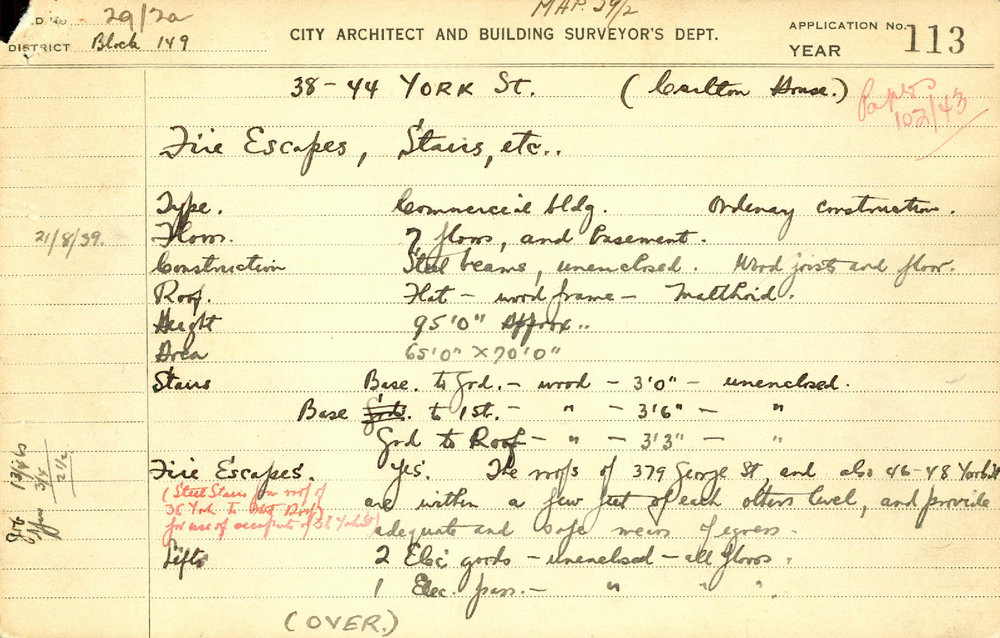 29/2a
MAP. 29/2
D No
DISTRICT Block 149
CITY ARCHITECT AND BUILDING SURVEYOR'S DEPT.
APPLICATION No. 113
YEAR
38-44 YORK St. (Carlton House.)
Papers
102/43
Fire Escapes, Stairs, etc..
Type. Commercial bldg. Ordenay construction.
21/8/39. Floors. 7 floors, and Basement.
Construction Steel beams, unenclosed. Wood joists and floor.
Roof. Flat - wood frame - Malthoid.
Height 95'0" Approx..
Area 65'0" x 70'0"
Stairs Base. to Grd. - wood - 3'0" - unenclosed.
Base Grd. to 1st. - " - 3'6" - "
Grd to Roof - " - 3'3" - "
Fire Escapes. Yes. The roofs of 379 George St, and also 46-48 York St
(Steel Stairs from roof of are within a few feet of each others level, and provide
38 York to Roof)
for use of occupants of 38 York St) adequate and safe means of egress.
Lifts 2 Elec goods - unenclosed - all floors.
1 Elec. pass. - " " ".
(OVER.)